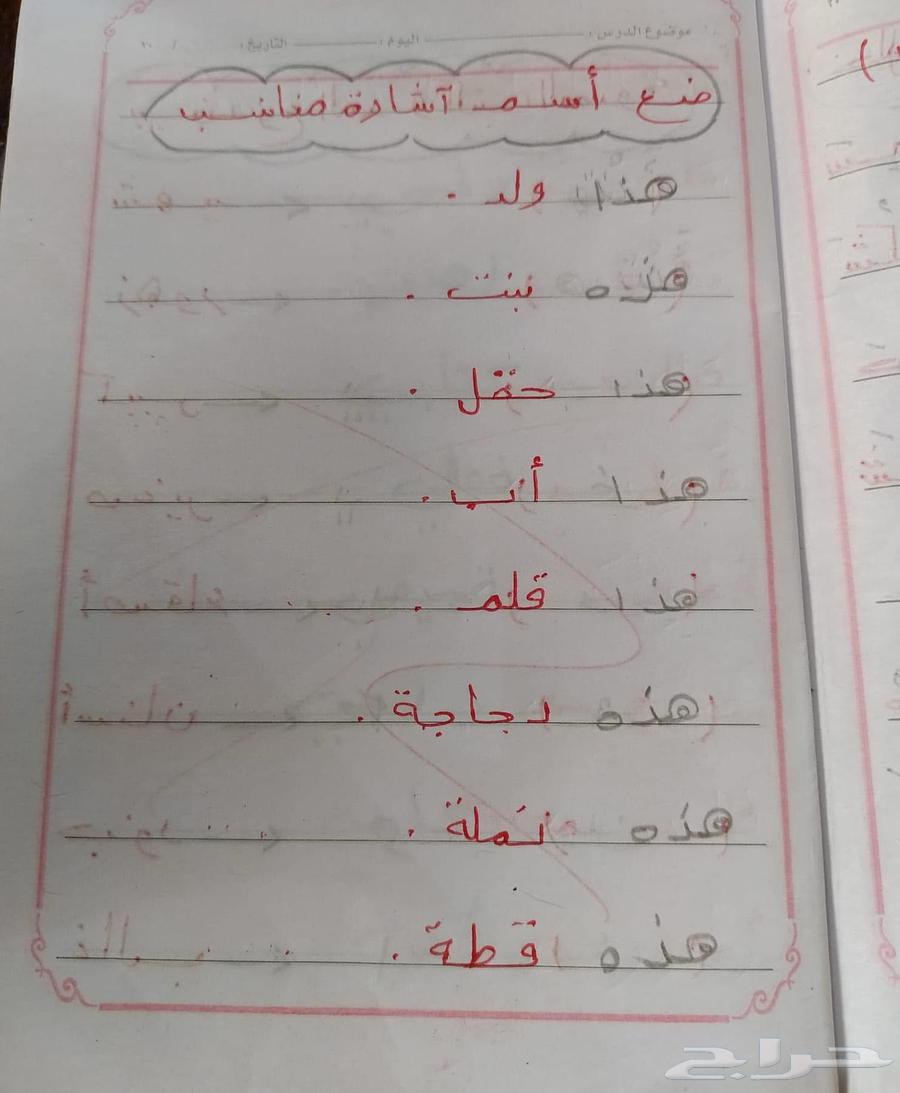 موضوع الدرس : اليوم : التاريخ : / ٢٠
ضع أسم آشارة مناسب
هذا ولد .
هذه بنت .
هذا حقل .
هذا أب .
هذا قلم .
هذه دجاجة .
هذه نملة .
هذه قطة .
حراج